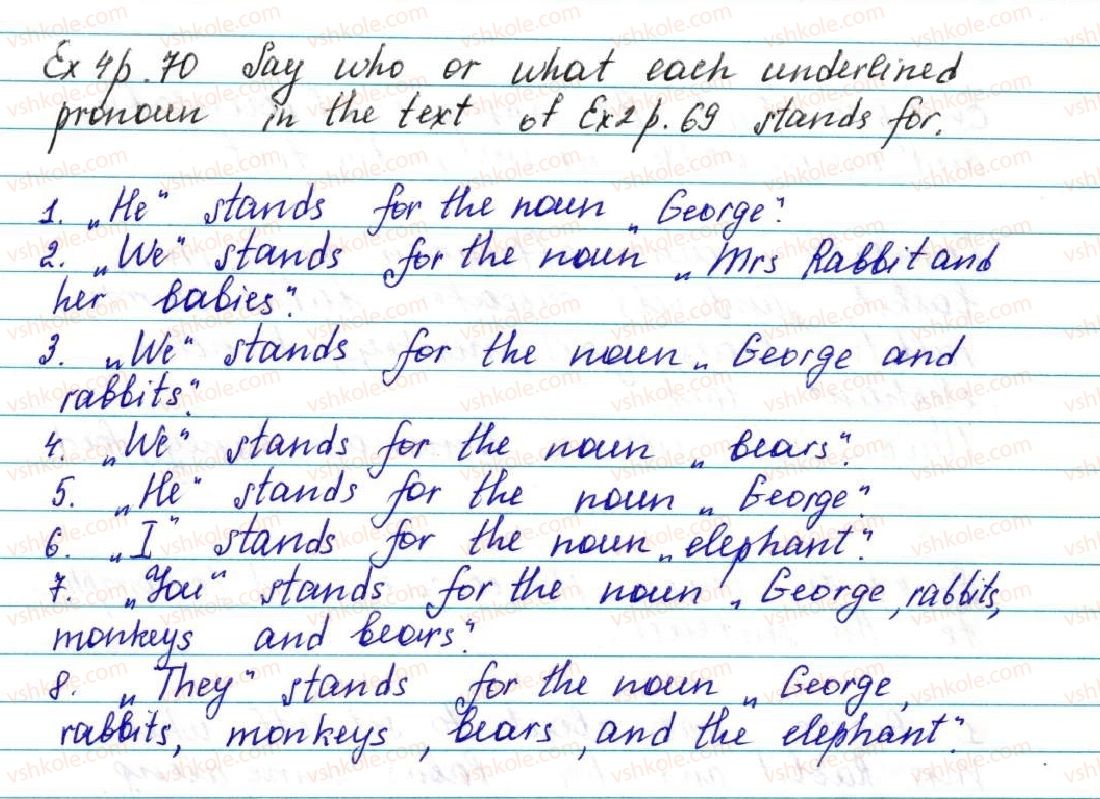 Ex 4 p. 70 Say who or what each underlined
pronoun in the text of Ex 2 p. 69 stands for.
1. „He“ stands for the noun „George“.
2. „We“ stands for the noun „Mrs Rabbit and
her babies“.
3. „We“ stands for the noun „George and
rabbits“.
4. „We“ stands for the noun „bears“.
5. „He“ stands for the noun „George“.
6. „I“ stands for the noun „elephant“.
7. „You“ stands for the noun „George, rabbits,
monkeys and bears“.
8. „They“ stands for the noun „George,
rabbits, monkeys, bears, and the elephant“.